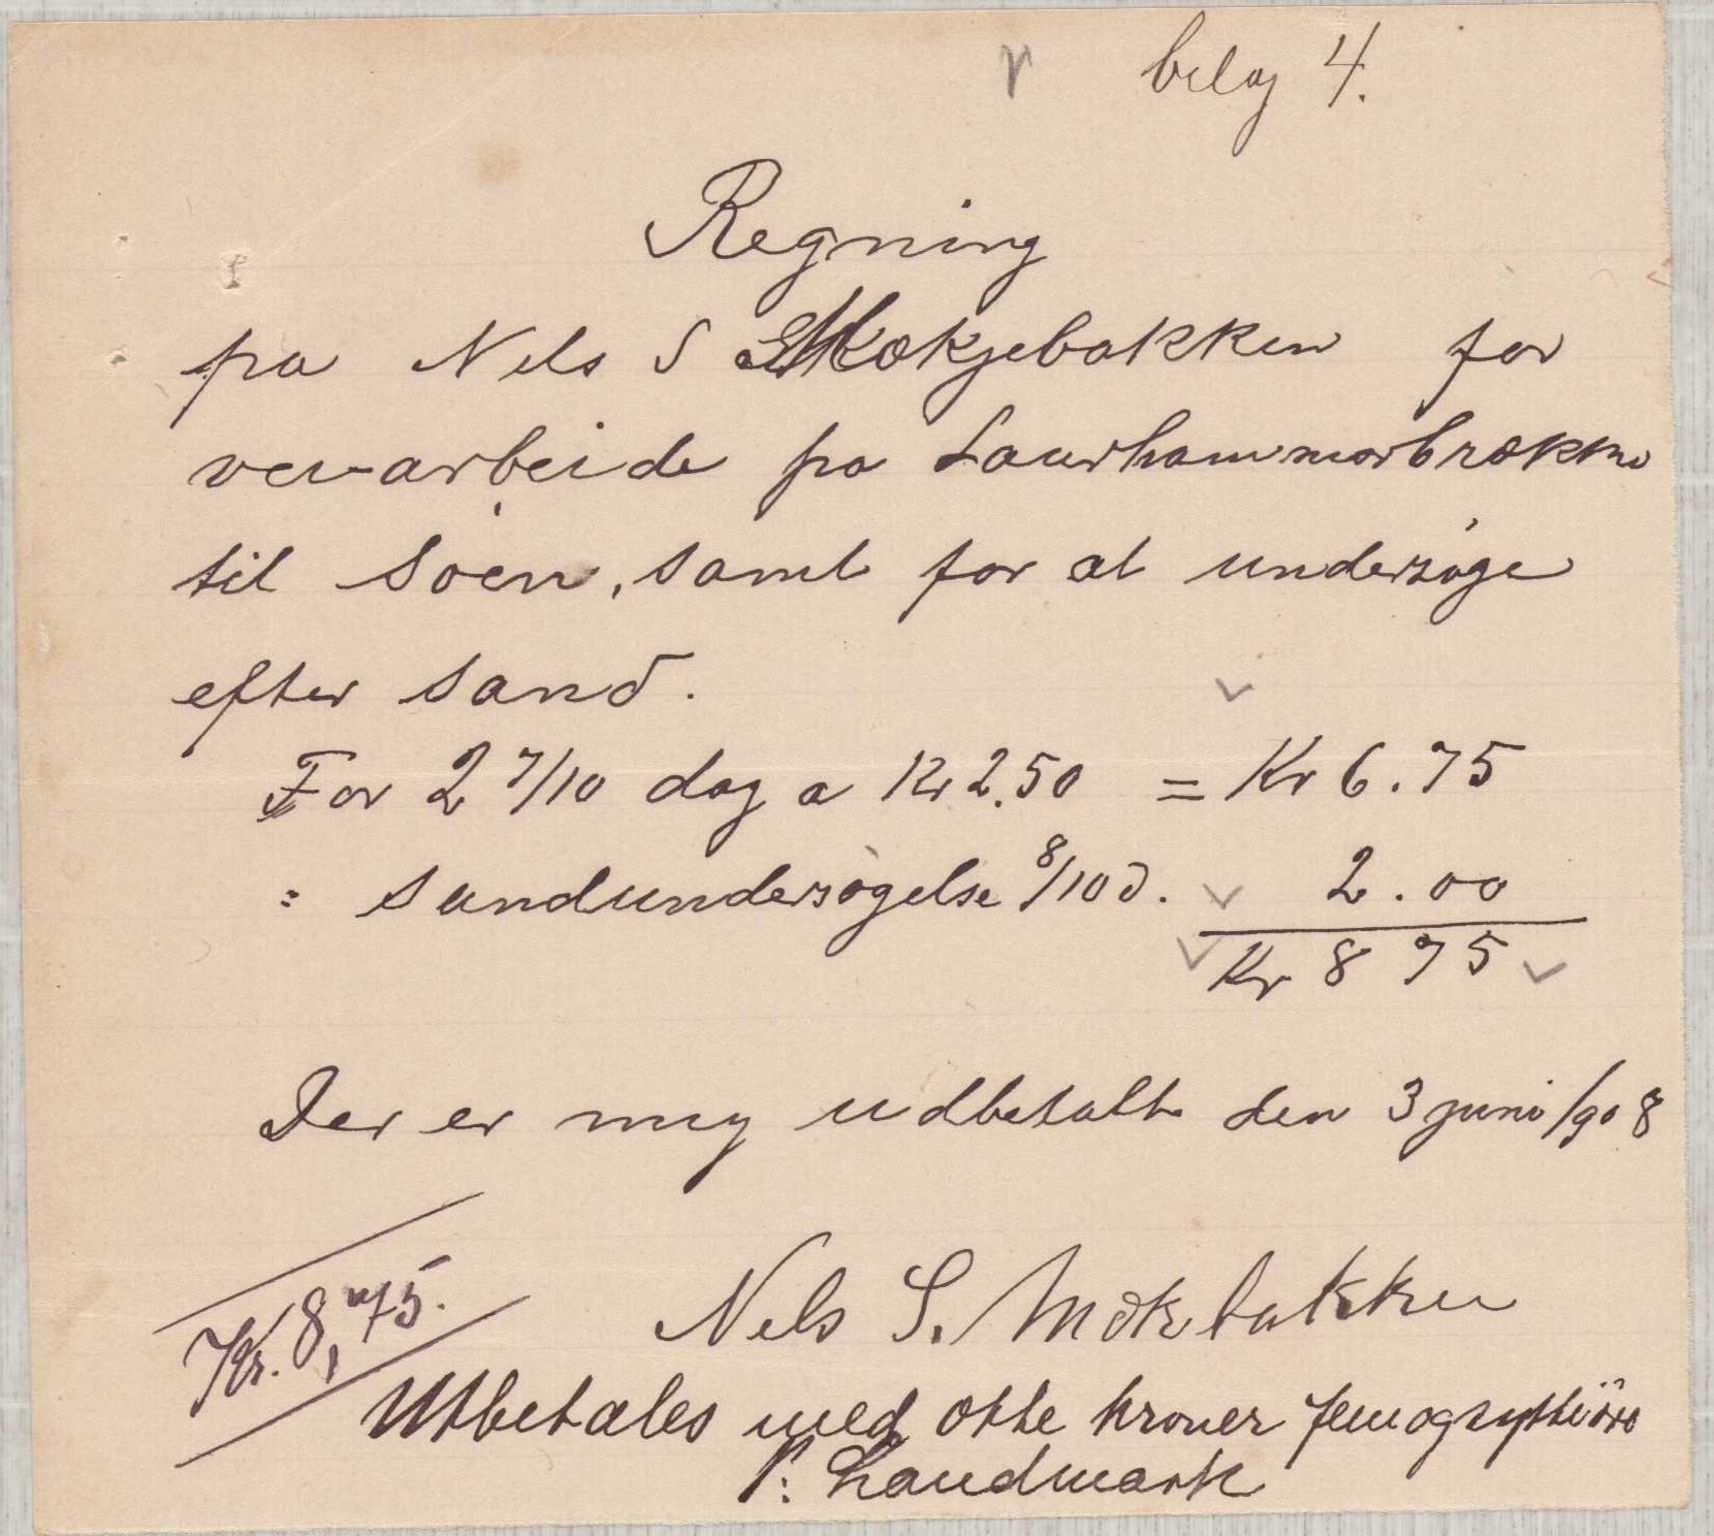 bilag 4.
Regning
fra Nels S Mokjebakken for
veiarbeide pa Laurhammerbrækken
til Söen, samt for at undersöge
efter sand.
For 2 7/10 dag a Kr 2.50 = Kr 6.75
: Sandundersögelse 8/10 d. 2.00
Kr 8 75
Der er mig udbetalt den 3 juni /908
Nels S. Mokbakken
Kr. 8,75.
Utbetales med otte kroner femogsyttiöre
P. Landmark